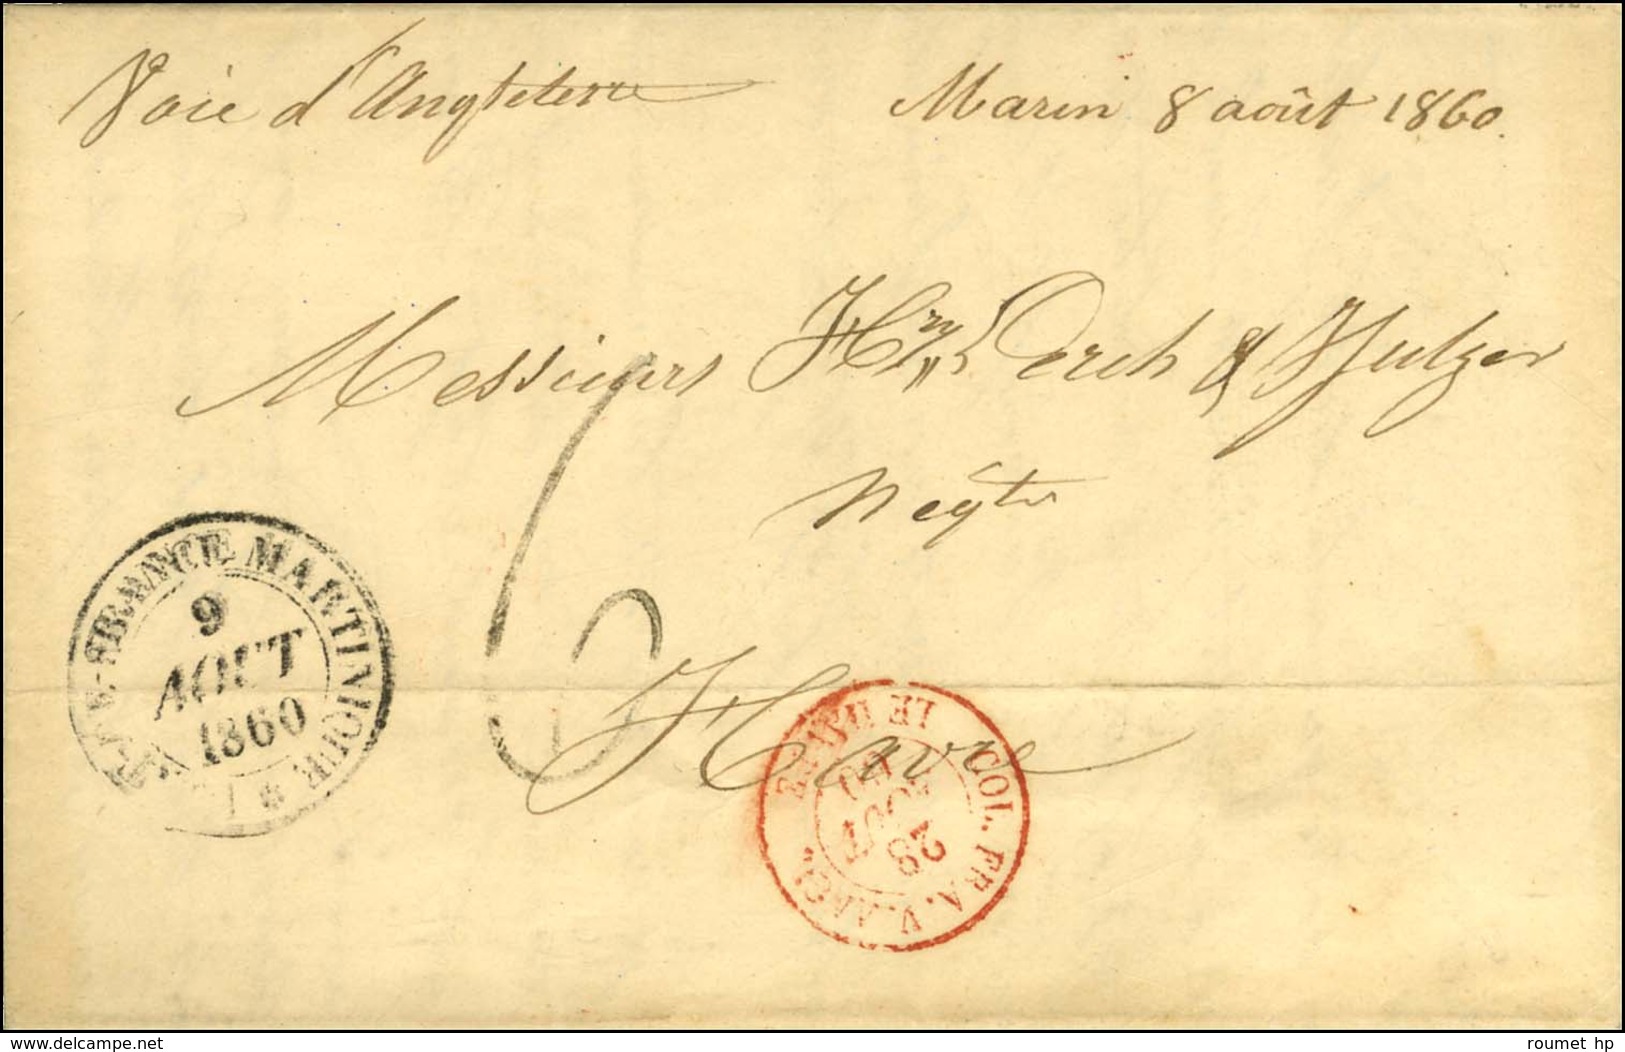 Voie d'Angleterre
Marin 8 août 1860.
Messieurs Hry Derch & Sulzer
Negts
Havre
6
FRANCE MARTINIQUE *
9
AOUT
1860
COL. FRA. V. ANGL. LE HAVRE
28
AOUT
60
roumet hp
delcampe.net